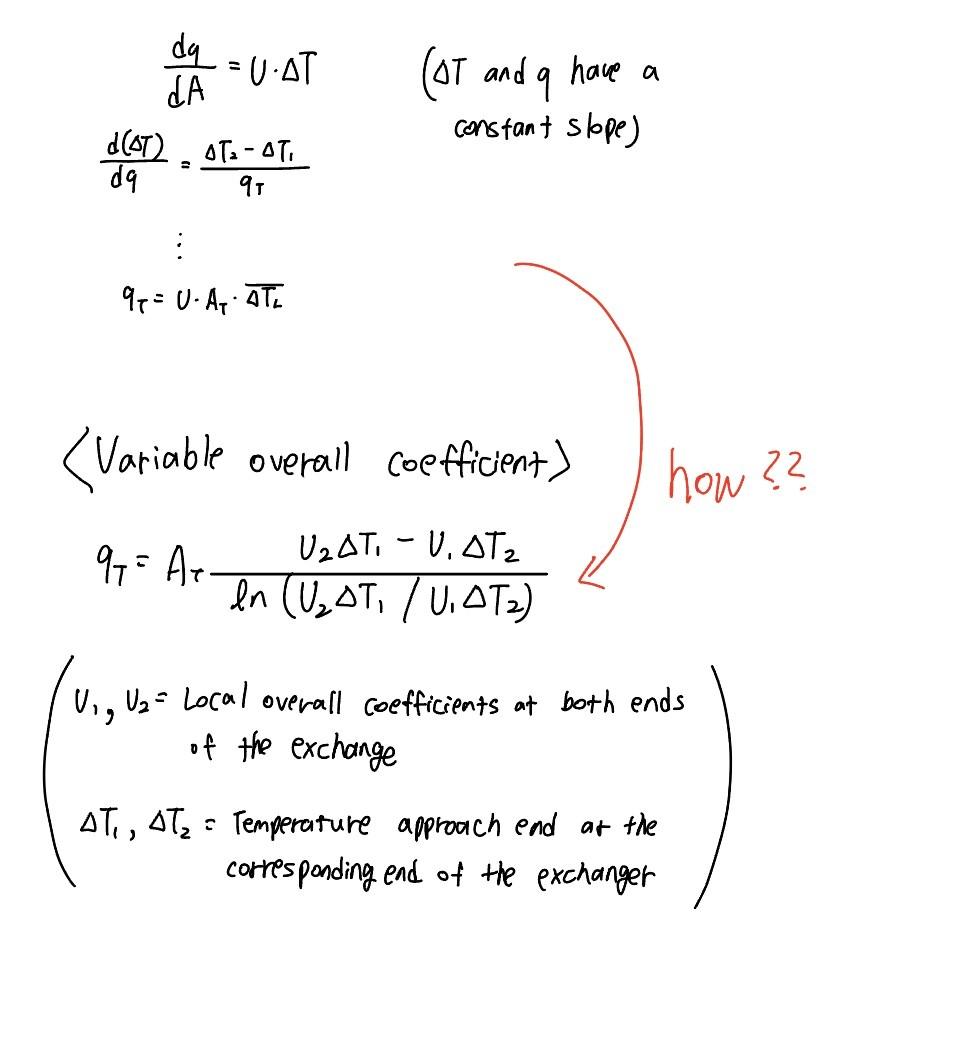 dq/dA = U·ΔT (ΔT and q have a
constant slope)
d(ΔT)/dq = ΔT₂ - ΔT₁/q_T
⋮
q_T = U·A_T·\overline{ΔT_L}
<Variable overall coefficient>
how ??
q_T = A_T U₂ΔT₁ - U₁ΔT₂/ln (U₂ΔT₁ / U₁ΔT₂)
U₁, U₂ = Local overall coefficients at both ends
of the exchange
ΔT₁, ΔT₂ = Temperature approach end at the
corresponding end of the exchanger